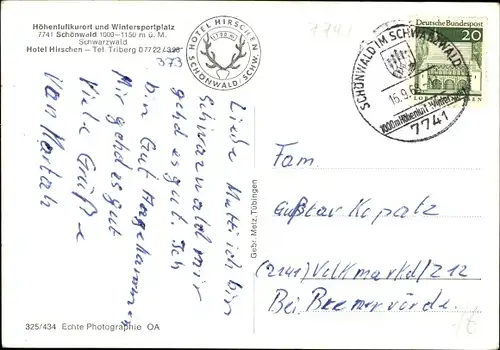 Höhenluftkurort und Wintersportplatz
7741 Schönwald 1000–1150 m ü. M.
Schwarzwald
Hotel Hirschen – Tel. Triberg 07722/398
373
HOTEL HIRSCHEN
SCHÖNWALD-SCHW.
7741
SCHÖNWALD IM SCHWARZWALD
16.9.6
1000 m Höhenluft Wintersport
7741
Deutsche Bundespost
20
LORSCH/HESSEN
Liebe Mutti ich bin
Schwarzwald mir
gehd es gut. Ich
bin Gut Angekommen
Mir gehd es gut
Viele Grüße
Von
Gebr. Metz, Tübingen
Fam.
Gustav Kopatz
(2141) Volkmarkd/Z12
Bei Bremervörde.
325/434 Echte Photographie OA